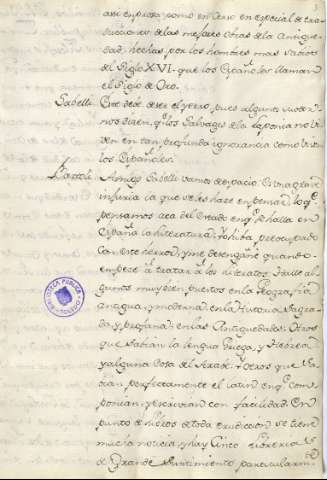 assi en prosa, como en verso en especial de tra
ducciones de las mejores obras de la Antigue
dad, hechas por los hombres mas sabios
del Siglo XVI. que los Españoles llaman
el Siglo de Oro.
Sabelli. deve de ser el yerro, pues algunos
nos dicen, q.e los Salvages de la Laponia no vi
ven en tan profunda ignorancia como viven
los Españoles.
Bartoli Amigo Sabelli vamos despacio. Es una grave
injuria la que se les haze en pensar lo q.e
pensamos aca del Estado en q.e se halla en
España la literatura. Yo hiba preocupado
con este herror, y me desengañe quando
empece a tratar a los literatos. Halle al
gunos muy bien puestos en la Geografia
antigua, y moderna, en la Historia Sagra
da y profana, en las Antiguedades. Otros
que sabian la lengua Griega, y Hebrea
y alguna cosa del Arabe. Otros que ha
blan perfectamente el latin en q.e com
ponian, y escrivian con facilidad. En
punto de libros de toda erudicion se tiene
mucha noticia, y hay Cinco Librerias
de Grande Surtimiento particularm.
BIBLIOTECA PUBLICA TOLEDO